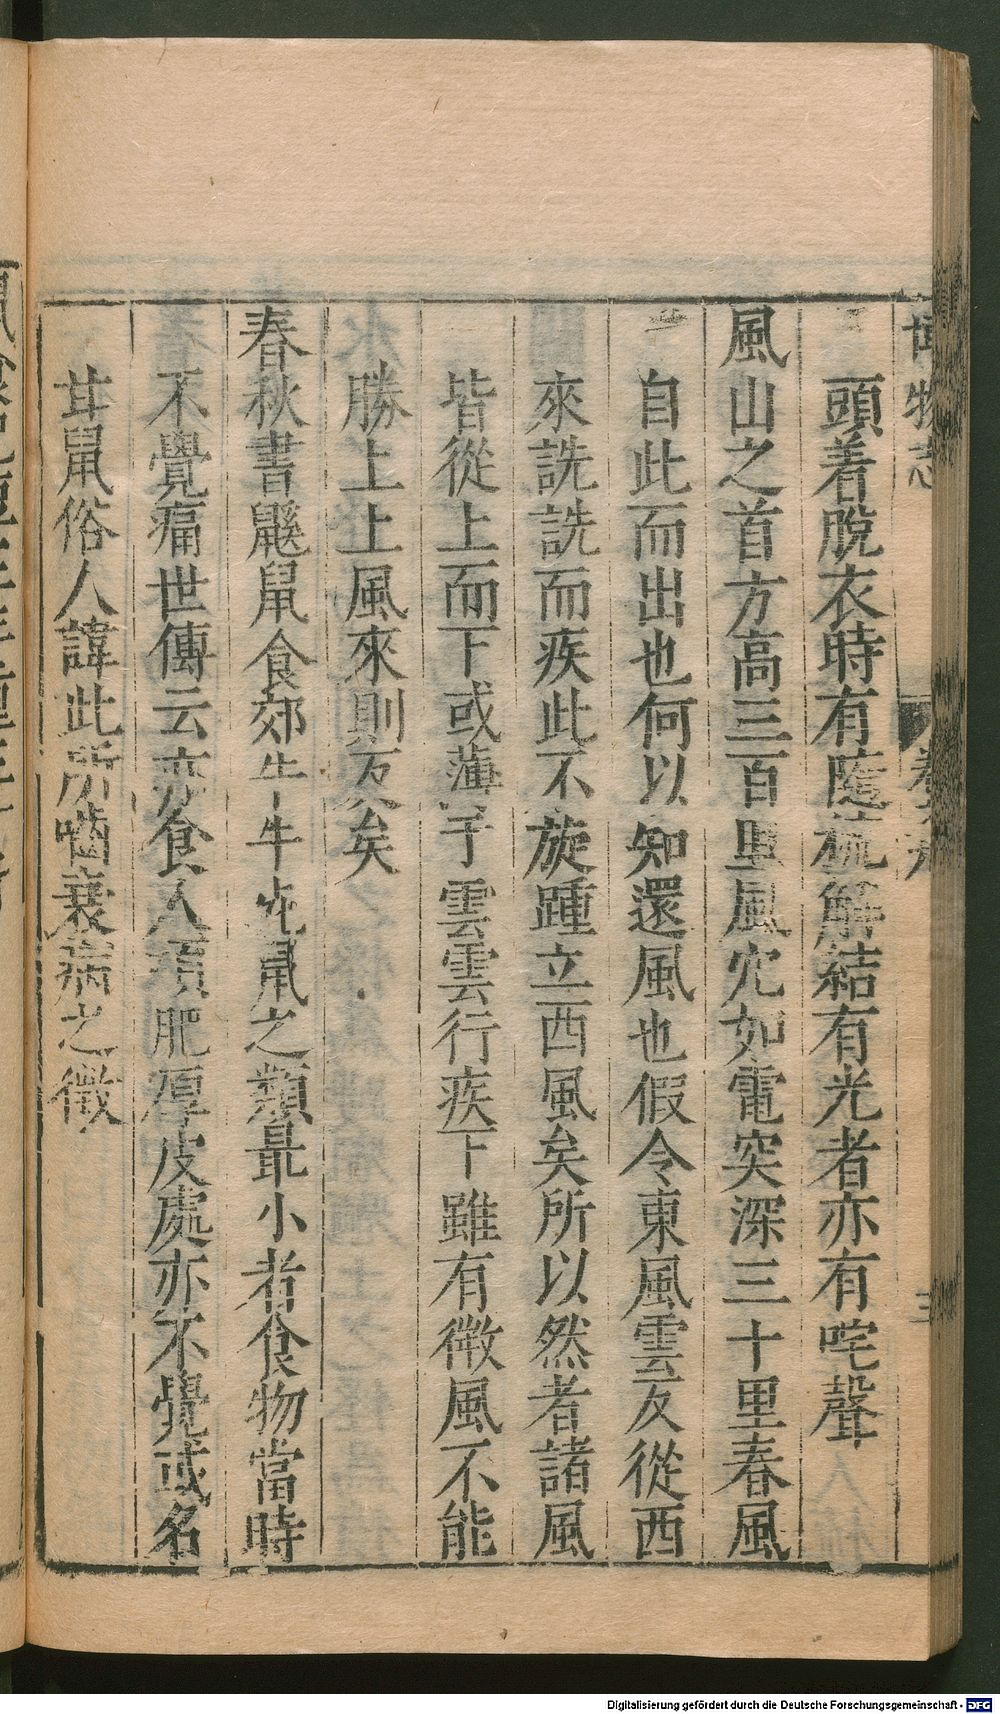 頭着脫衣時有隨梳解結有光者亦有咤聲
風山之首方高三百里風穴如電突深三十里春風
自此而出也何以知還風也假令東風雲反從西
來詵詵而疾此不旋踵立西風矣所以然者諸風
皆從上而下或薄于雲雲行疾下雖有微風不能
勝上上風來則反矣
春秋書鼷鼠食郊牛牛死鼠之類最小者食物當時
不覺痛世傳云亦食人項肥厚皮處亦不覺或名
甘鼠俗人諱此所嚙衰病之徵
Digitalisierung gefördert durch die Deutsche Forschungsgemeinschaft - DFG